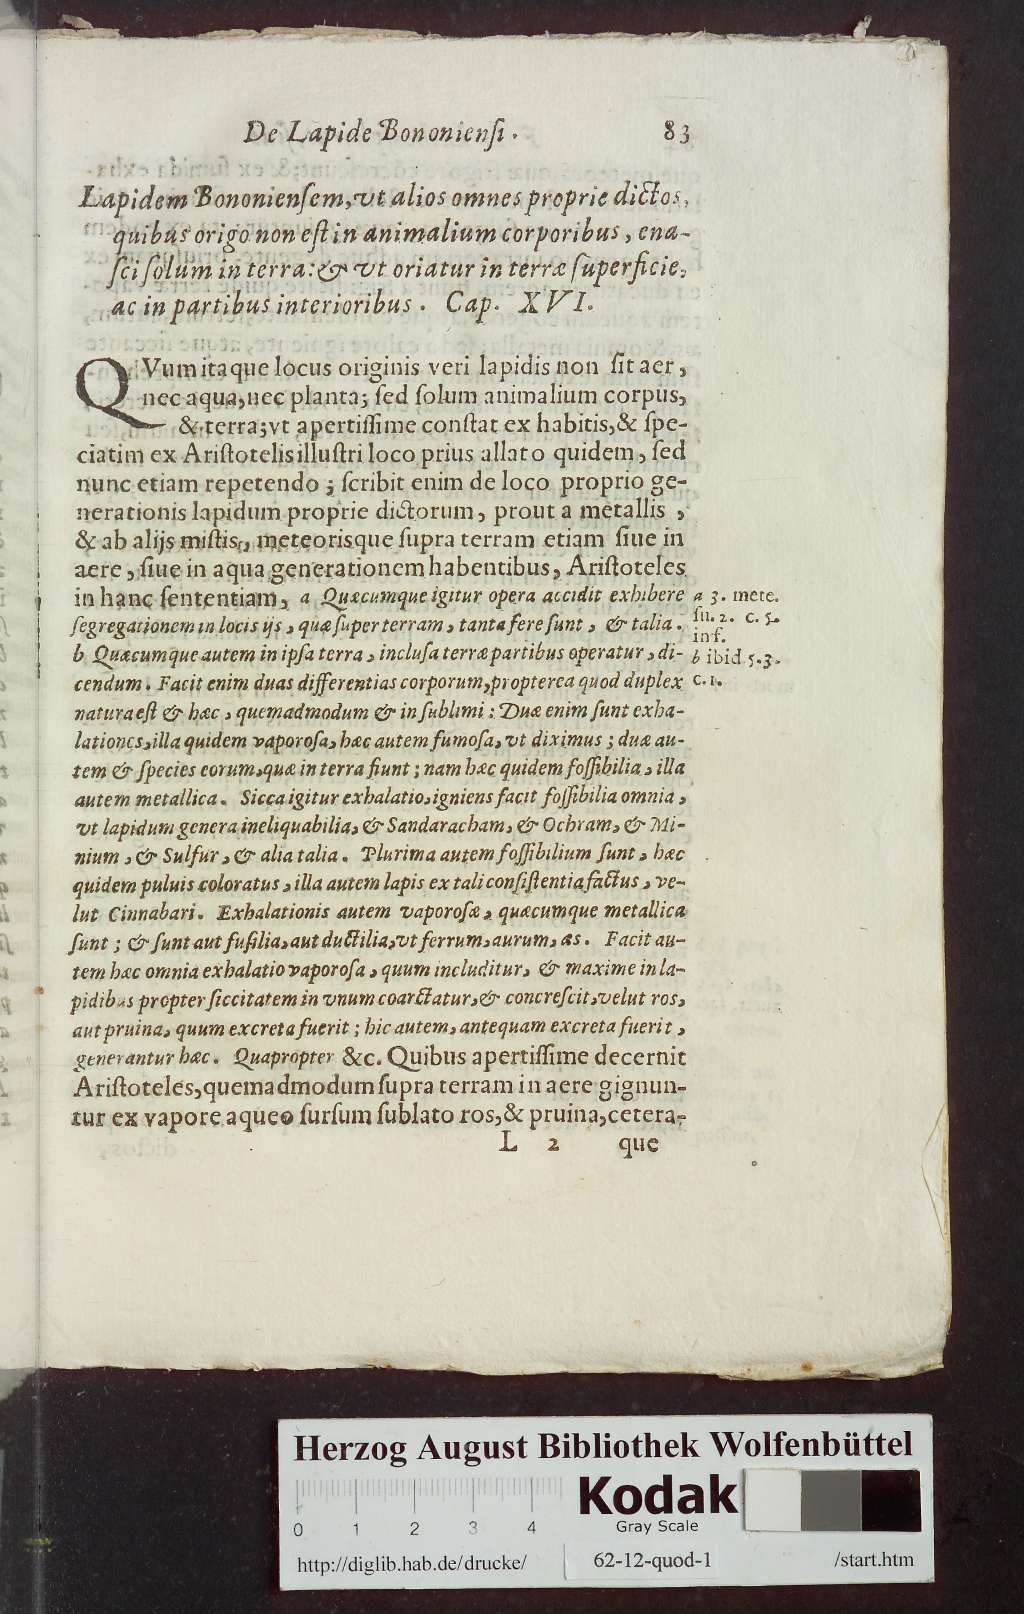 De Lapide Bononiensi. 83
Lapidem Bononiensem, vt alios omnes proprie dictos,
quibus origo non est in animalium corporibus, ena-
sci solum in terra: & vt oriatur in terræ superficie,
ac in partibus interioribus. Cap. XVI.
QVum itaque locus originis veri lapidis non sit aer,
nec aqua, nec planta; sed solum animalium corpus,
& terra; vt apertissime constat ex habitis, & spe-
ciatim ex Aristotelis illustri loco prius allato quidem, sed
nunc etiam repetendo; scribit enim de loco proprio ge-
nerationis lapidum proprie dictorum, prout a metallis,
& ab alijs mistis, meteorisque supra terram etiam siue in
aere, siue in aqua generationem habentibus, Aristoteles
in hanc sententiam, a Quæcumque igitur opera accidit exhibere
segregationem in locis ijs, quæ super terram, tanta fere sunt, & talia.
b Quæcumque autem in ipsa terra, inclusa terræ partibus operatur, di-
cendum. Facit enim duas differentias corporum, propterea quod duplex
natura est & hæc, quemadmodum & in sublimi: Duæ enim sunt exha-
lationes, illa quidem vaporosa, hæc autem fumosa, vt diximus; duæ au-
tem & species eorum, quæ in terra fiunt; nam hæc quidem fossibilia, illa
autem metallica. Sicca igitur exhalatio, igniens facit fossibilia omnia,
vt lapidum genera ineliquabilia, & Sandaracham, & Ochram, & Mi-
nium, & Sulfur, & alia talia. Plurima autem fossibilium sunt, hæc
quidem puluis coloratus, illa autem lapis ex tali consistentia factus, ve-
lut Cinnabari. Exhalationis autem vaporosæ, quæcumque metallica
sunt; & sunt aut fusilia, aut ductilia, vt ferrum, aurum, æs. Facit au-
tem hæc omnia exhalatio vaporosa, quum includitur, & maxime in la-
pidibus propter siccitatem in vnum coarctatur, & concrescit, velut ros,
aut pruina, quum excreta fuerit; hic autem, antequam excreta fuerit,
generantur hæc. Quapropter &c. Quibus apertissime decernit
Aristoteles, quemadmodum supra terram in aere gignun-
tur ex vapore aqueo sursum sublato ros, & pruina, cetera-
L 2 que
a 3. mete.
su. 2. c. 5.
inf.
b ibid 5.3.
c.1.
Herzog August Bibliothek Wolfenbüttel
0 1 2 3 4
Kodak
Gray Scale
http://diglib.hab.de/drucke/ 62-12-quod-1 /start.htm